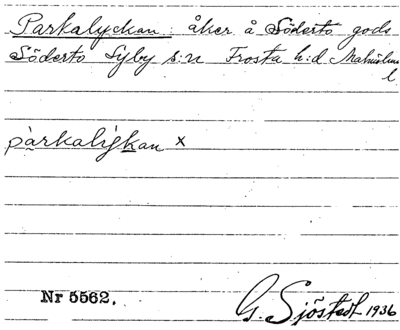 Parkalyckan: åker å Söderto gods
Söderto Syby s:n Frosta h:d Malmöhus
l.
pàrkalig̣kan x
Nr 5562.
G. Sjöstedt 1936